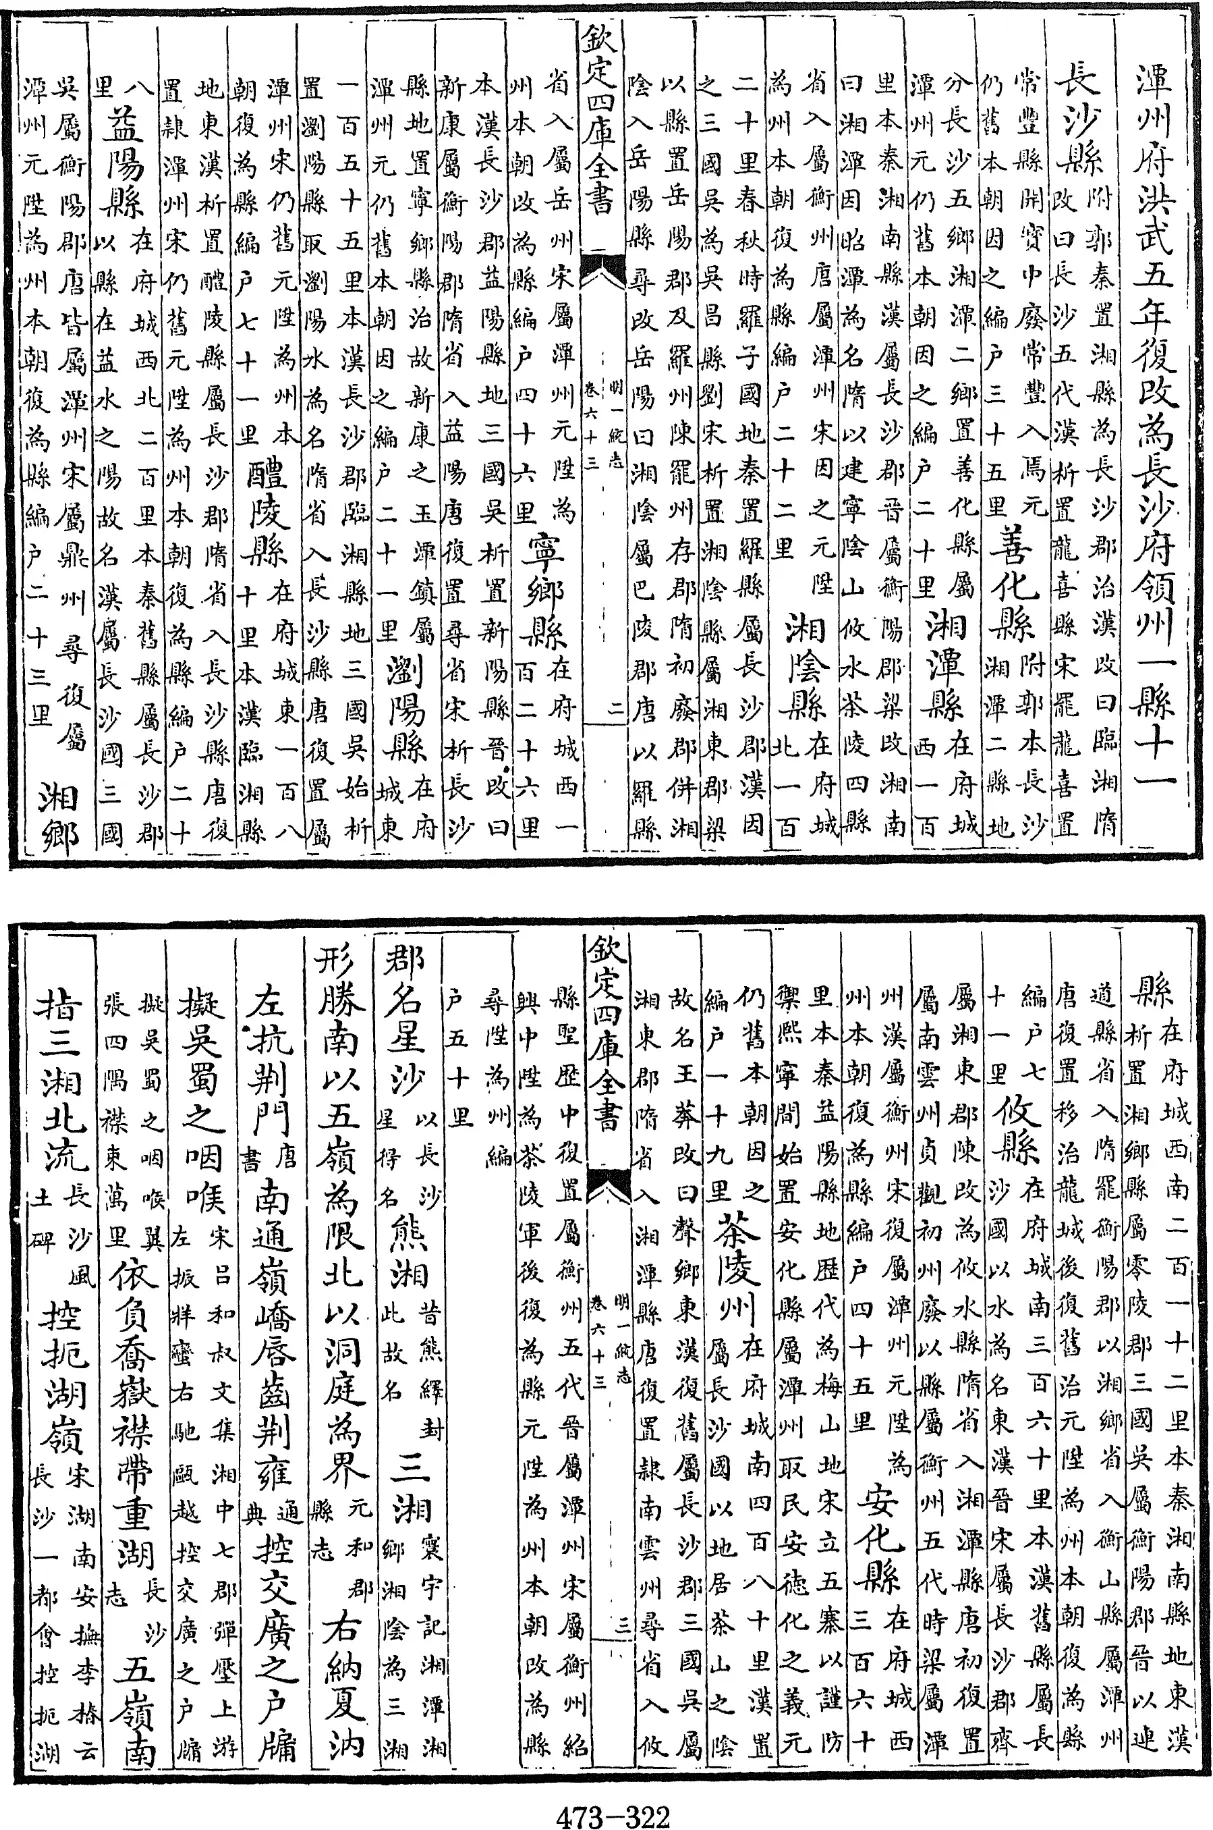 潭州府洪武五年復改為長沙府領州一縣十一
長沙縣
附郭秦置湘縣為長沙郡治漢改曰臨湘隋
改曰長沙五代漢析置龍喜縣宋罷龍喜置
常豐縣開寶中廢常豐入焉元
仍舊本朝因之編户三十五里
善化縣
附郭本長沙
湘潭二縣地
分長沙五鄉湘潭二鄉置善化縣屬
潭州元仍舊本朝因之編户二十里
湘潭縣
在府城
西一百
里本秦湘南縣漢屬長沙郡晉屬衡陽郡梁改湘南
曰湘潭因昭潭為名隋以建寧陰山攸水茶陵四縣
省入屬衡州唐屬潭州宋因之元陞
為州本朝復為縣編户二十二里
湘陰縣
在府城
北一百
二十里春秋時羅子國地秦置羅縣屬長沙郡漢因
之三國吳為吳昌縣劉宋析置湘陰縣屬湘東郡梁
以縣置岳陽郡及羅州陳罷州存郡隋初廢郡併湘
陰入岳陽縣尋改岳陽曰湘陰屬巴陵郡唐以羅縣
欽定四庫全書
明一統志
卷六十三
二
省入屬岳州宋屬潭州元陞為
州本朝改為縣編户四十六里
寧鄉縣
在府城西一
百二十六里
本漢長沙郡益陽縣地三國吳析置新陽縣晉改曰
新康屬衡陽郡隋省入益陽唐復置尋省宋析長沙
縣地置寧鄉縣治故新康之玉潭鎮屬
潭州元仍舊本朝因之編户二十一里
瀏陽縣
在府
城東
一百五十五里本漢長沙郡臨湘縣地三國吳始析
置瀏陽縣取瀏陽水為名隋省入長沙縣唐復置屬
潭州宋仍舊元陞為州本
朝復為縣編户七十一里
醴陵縣
在府城東一百八
十里本漢臨湘縣
地東漢析置醴陵縣屬長沙郡隋省入長沙縣唐復
置隸潭州宋仍舊元陞為州本朝復為縣編户二十
八
里
益陽縣
在府城西北二百里本秦舊縣屬長沙郡
以縣在益水之陽故名漢屬長沙國三國
吳屬衡陽郡唐皆屬潭州宋屬鼎州尋復屬
潭州元陞為州本朝復為縣編户二十三里
湘鄉
縣
在府城西南二百一十二里本秦湘南縣地東漢
析置湘鄉縣屬零陵郡三國吳屬衡陽郡晉以連
道縣省入隋罷衡陽郡以湘鄉省入衡山縣屬潭州
唐復置移治龍城後復舊治元陞為州本朝復為縣
編户七
十一里
攸縣
在府城南三百六十里本漢舊縣屬長
沙國以水為名東漢晉宋屬長沙郡齊
屬湘東郡陳改為攸水縣隋省入湘潭縣唐初復置
屬南雲州貞觀初州廢以縣屬衡州五代時梁屬潭
州漢屬衡州宋復屬潭州元陞為
州本朝復為縣編户四十五里
安化縣
在府城西
三百六十
里本秦益陽縣地歷代為梅山地宋立五寨以謹防
禦熙寧間始置安化縣屬潭州取民安德化之義元
仍舊本朝因之
編户一十九里
茶陵州
在府城南四百八十里漢置
屬長沙國以地居茶山之陰
故名王莽改曰聲鄉東漢復舊屬長沙郡三國吳屬
湘東郡隋省入湘潭縣唐復置隸南雲州尋省入攸
欽定四庫全書
明一統志
卷六十三
三
縣聖歴中復置屬衡州五代晉屬潭州宋屬衡州紹
興中陞為茶陵軍後復為縣元陞為州本朝改為縣
尋陞為州編
户五十里
郡名星沙
以長沙
星得名
熊湘
昔熊繹封
此故名
三湘
寰宇記湘潭湘
鄉湘陰為三湘
形勝南以五嶺為限北以洞庭為界
元和郡
縣志
右納夏汭
左抗荆門
唐
書
南通嶺嶠唇齒荆雍
通
典
控交廣之户牖
擬吳蜀之咽㗋
宋呂和叔文集湘中七郡彈壓上游
左振牂蠻右馳甌越控交廣之户牖
擬吳蜀之咽㗋翼
張四隅襟束萬里
依負喬嶽襟帶重湖
長沙
志
五嶺南
指三湘北流
長沙風
土碑
控扼湖嶺
宋湖南安撫李椿云
長沙一都㑹控扼湖
473-322